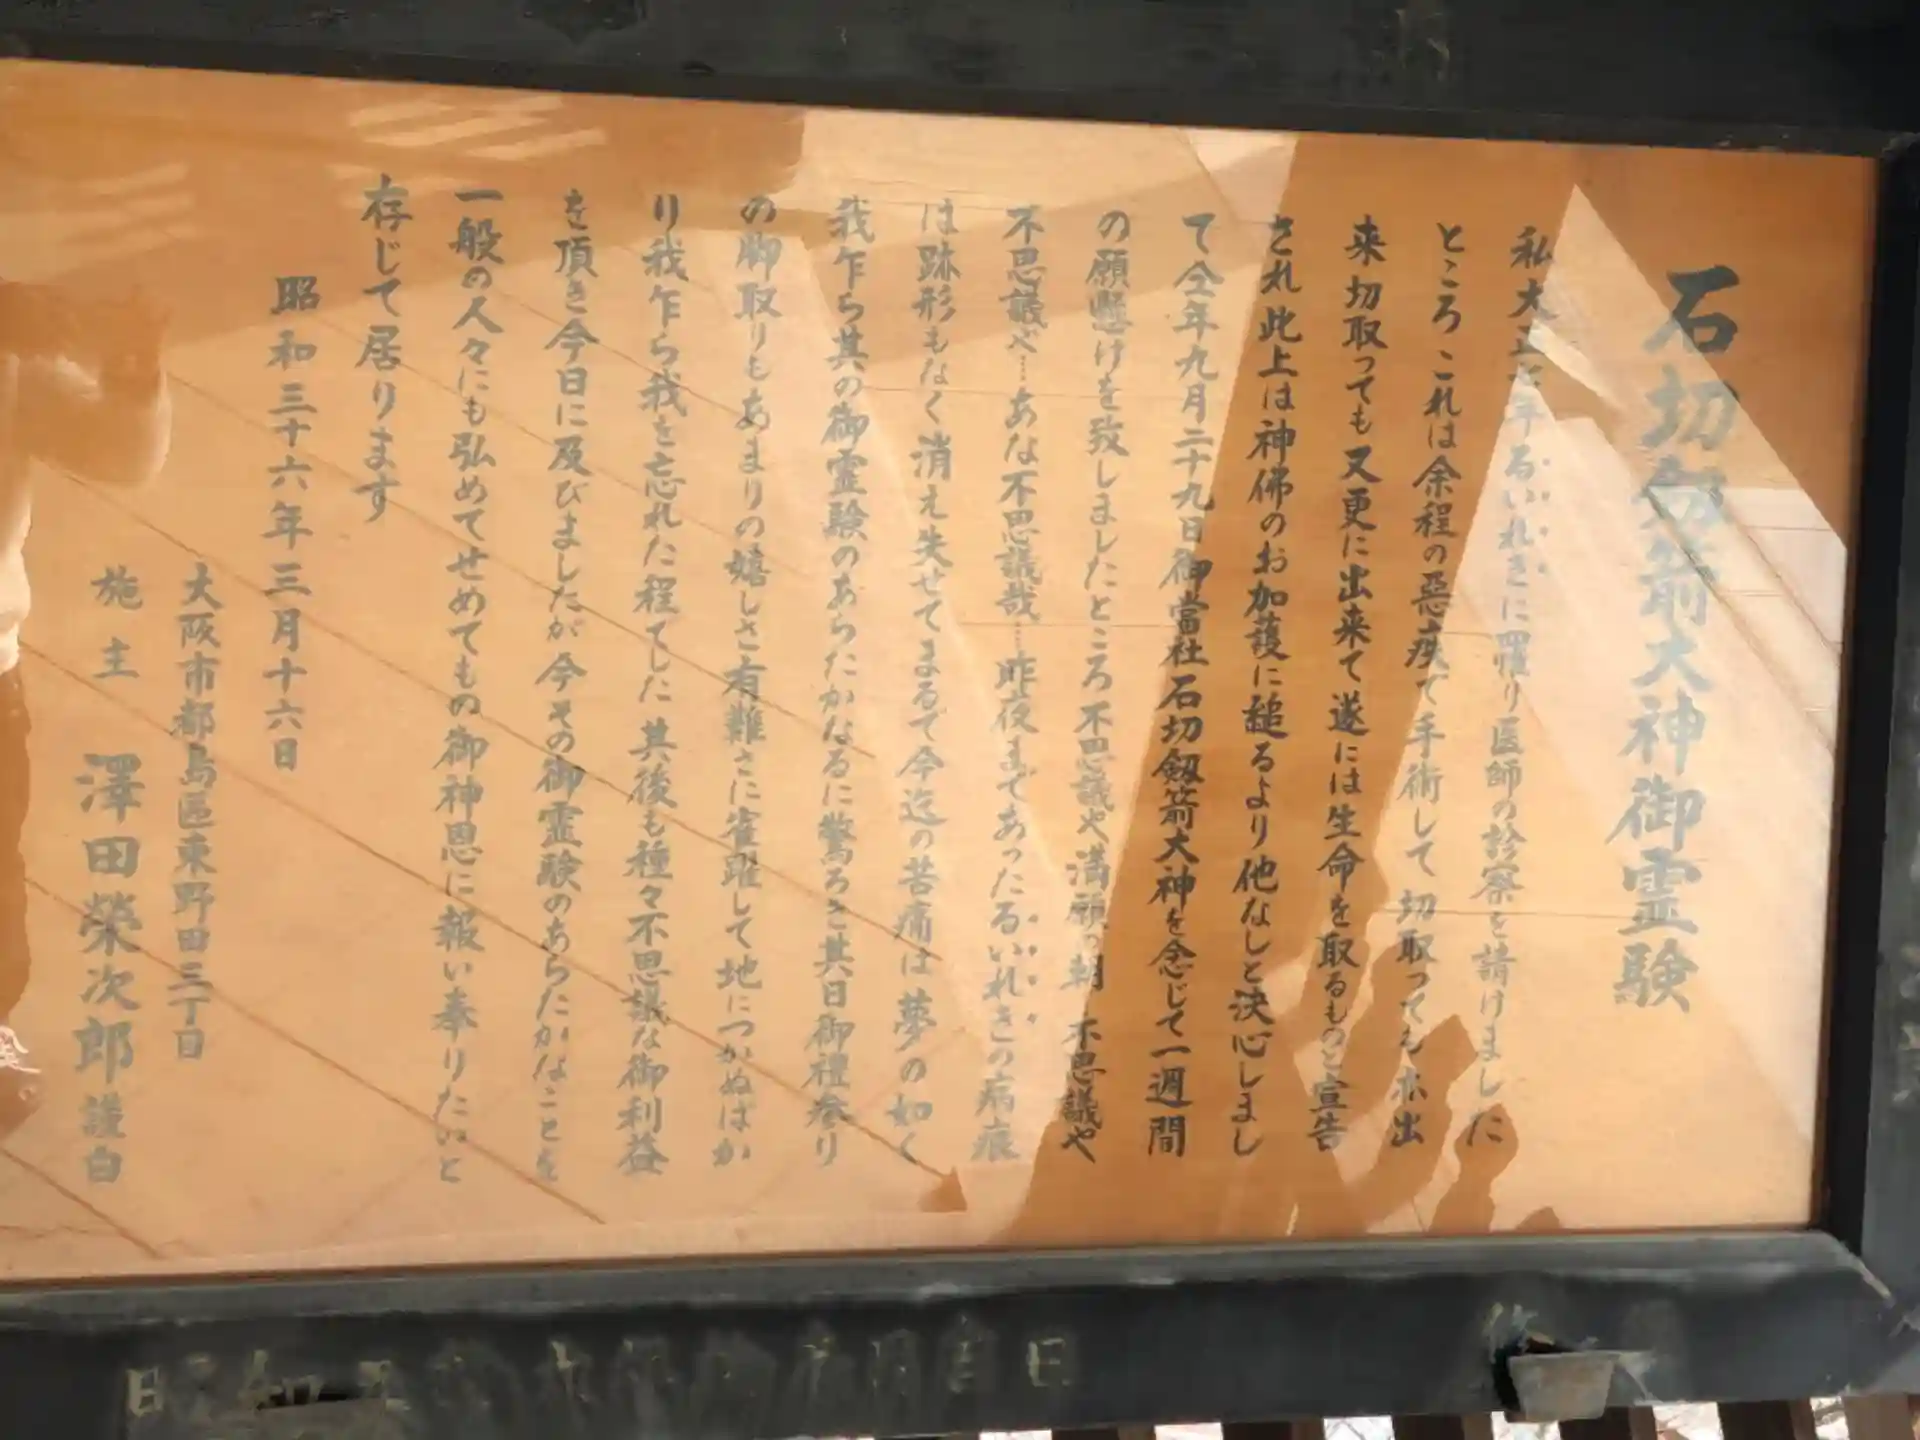 石切劔箭大神御霊験
私大正七年るいれきに罹り医師の診察を請けました
ところこれは余程の悪疾で手術して切取っても亦出
来切取っても又更に出来て遂には生命を取るものと宣告
され此上は神佛のお加護に縋るより他なしと決心しまし
て仝年九月二十九日御當社石切劔箭大神を念じて一週間
の願懸けを致しましたところ不思議や満願の朝 不思議や
不思議や…あな不思議哉…昨夜まであったるいれきの病痕
は跡形もなく消え失せてまるで今迄の苦痛は夢の如く
我乍ら其の御霊験のあらたかなるに驚ろき其日御禮参り
の脚取りもあまりの嬉しさ有難さに雀躍して地につかぬばか
り我乍ら我を忘れた程でした 其後も種々不思議な御利益
を頂き今日に及びましたが今その御霊験のあらたかなことを
一般の人々にも弘めてせめてもの御神恩に報い奉りたいと
存じて居ります
昭和三十六年三月十六日
大阪市都島區東野田三丁目
施主 澤田榮次郎 謹白